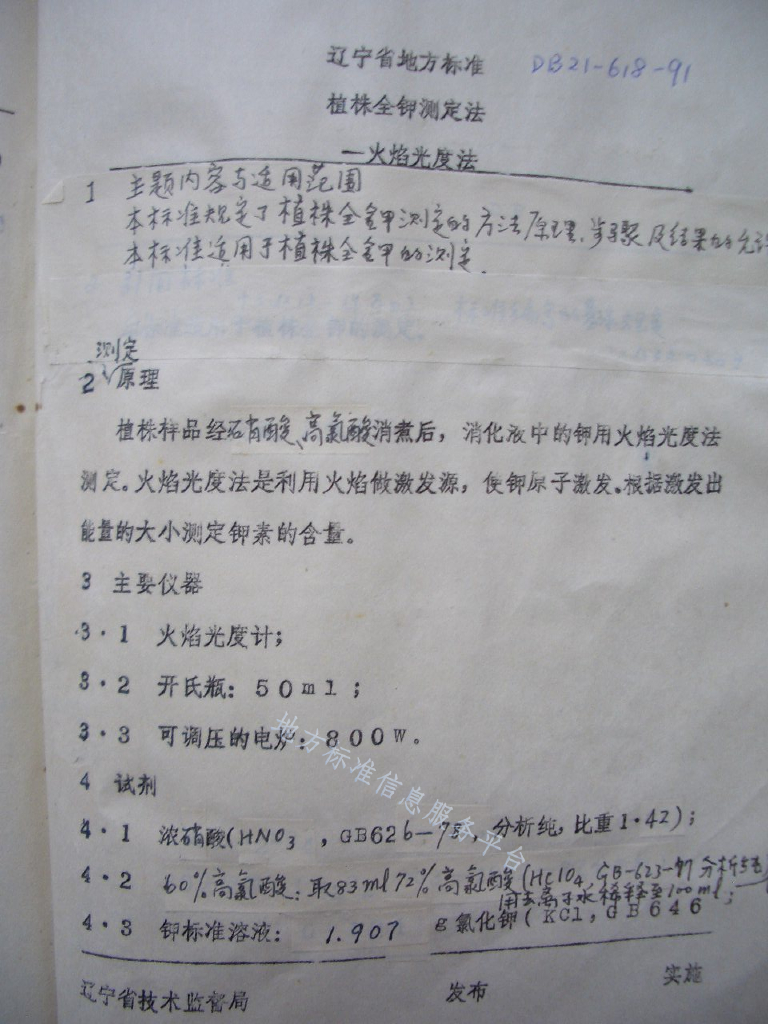 辽宁省地方标准 DB21-618-91
植株全钾测定法
—火焰光度法
1 主题内容与适用范围
本标准规定了植株全钾测定的方法原理、步骤及结果的允许
本标准适用于植株全钾的测定.
测定
2 原理
植株样品经硝酸、高氯酸消煮后，消化液中的钾用火焰光度法
测定。火焰光度法是利用火焰做激发源，使钾原子激发。根据激发出
能量的大小测定钾素的含量。
3 主要仪器
3·1 火焰光度计；
3·2 开氏瓶：50ml；
3·3 可调压的电炉：800W。
4 试剂
4·1 浓硝酸(HNO3，GB626—78，分析纯，比重1·42)；
4·2 60%高氯酸：取83ml72%高氯酸(HClO4 GB-623-77分析纯
用去离子水稀释至100ml；
4·3 钾标准溶液： 1.907 g氯化钾(KCl，GB646
辽宁省技术监督局 发布 实施
地方标准信息服务平台